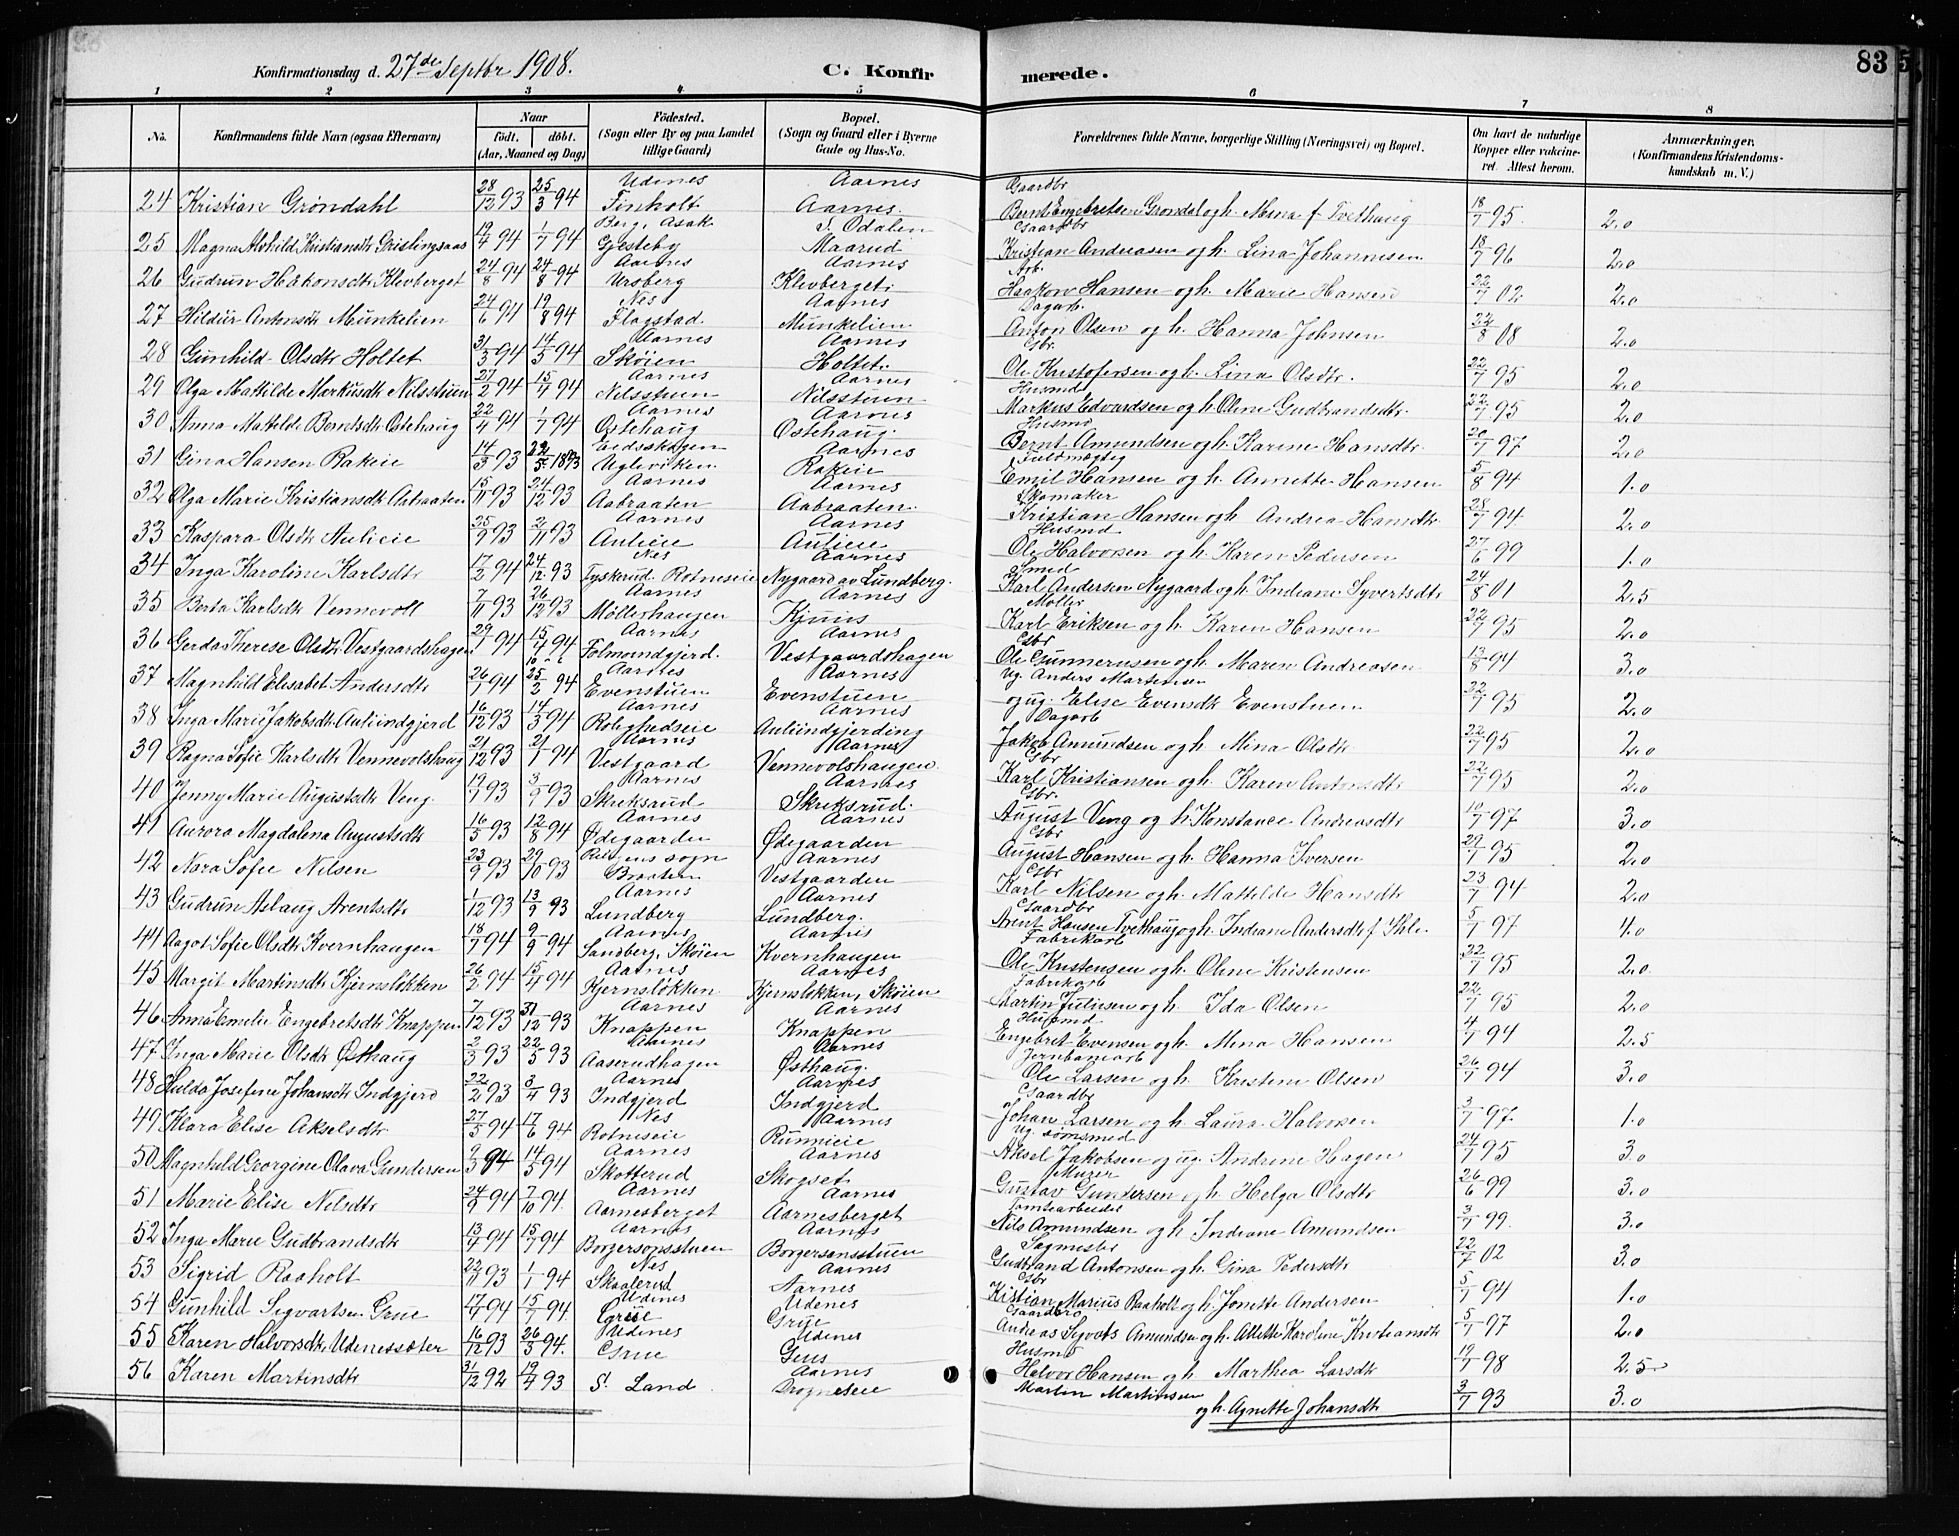 Konfirmationsdag d. 27de Septbr 1908. C. Konfirmerede. 83
1 2 3 4 5 6 7 8
No. Konfirmandens fulde Navn (ogsaa Efternavn) Naar født. døbt. (Aar, Maaned og Dag) Fødested. (Sogn eller By og paa Landet tillige Gaard) Bopæl. (Sogn og Gaard eller i Byerne Gade og Hus-No. Forældrenes fulde Navne, borgerlige Stilling (Næringsvei) og Bopæl. Om havt de naturlige Kopper eller vakcineret. Attest herom. Anmærkninger. (Konfirmandens Kristendomskundskab m. V.)
24 Kristian Grøndahl 28/12 93 25/3 94 Udenes Finholt Aarnes Aarnes. Gaardbr Bernt Engebretsen Grøndal og h. Mina f Tvethaug 18/7 95. 2.0
25 Magna Alvhild Kristiansdtr Grislingsaas 19/4 94 1/7 94 Berg, Asak Gjesteby S. Odalen Maarud Gaardbr Kristian Andreasen og h. Lina Johannesen 18/7 96 2.0
26 Gudrun Håkonsdtr Klevberget 24/8 94 24/8 94 Aarnes Ursberg Aarnes Klevberget. Arb. Haakon Hansen og h. Marie Hansen 22/7 02 2.0
27 Hildur Antonsdtr Munkelien 24/6 94 19/8 94 Nes Flagstad. Aarnes Munkelien Dagarb. Anton Olsen og h. Hanna Johnsen 22/8 08 2.0
28 Gunhild Olsdtr Holtet 31/3 94 14/5 94 Aarnes Skøien Aarnes Holtet. Gbr. Ole Kristofersen og h. Lina Olsdtr. 22/7 95 2.0
29 Olga Mathilde Markusdtr Nilsstuen 27/2 94 15/4 94 Aarnes Nilsstuen Aarnes Nilsstuen Husmd Markus Edvardsen og h. Oline Gudbrandsdtr. 22/7 95 2.0
30 Anna Matilde Berntsdtr Østehaug 22/4 94 1/7 94 Aarnes Østehaug Aarnes Østehaug. Husmd Bernt Amundsen og h. Karine Hansdtr 20/7 97 2.0
31 Gina Hansen Rakeie 14/3 93 22/5 1893 Eidsskogen Ugleviken. Aarnes Rakeie Fuldmægtig Emil Hansen og h. Annette Hansen 5/8 94 1.0
32 Olga Marie Kristiansdtr Aabraaten 15/11 93 24/12 93 Aarnes Aabraaten Aarnes Aabraaten. Skomaker Kristian Hansen og h. Andrea Hansdtr 28/7 94 2.0
33 Kaspara Olsdtr Aulieie 25/9 93 2/11 93 Aarnes Aulieie Aarnes Aulieie Husmd Ole Halvorsen og h. Karen Pedersen 27/6 99 1.0
34 Inga Karoline Karlsdtr 17/2 94 24/12 93 Nes Tyskerud Rotneseie Aarnes Nygaard av Lundberg. Smed Karl Andersen Nygaard og h. Indiane Syvertsdtr 24/8 01 2.5
35 Berta Karlsdtr Vennevoll 7/11 93 26/12 93 Aarnes Møllerhaugen Aarnes Møller Karl Eriksen og h. Karen Hansen 22/7 95 2.0
36 Gerda Therese Olsdtr Vestgaardshagen 29/1 94 15/4 94 Aarnes Aarnes Vestgaardshagen Gbr Ole Gunnerusen og h. Maren Andreasen 13/8 94 3.0
37 Magnhild Elisabet Andersdtr 26/7 94 25/2 94 Aarnes Evenstuen Aarnes Evenstuen Ug. Anders Martinsen og ug. Elise Evensdtr Evenstuen 22/7 95 2.0
38 Inga Marie Jakobsdtr Auliindgjerd 16/12 93 14/3 94 Aarnes Rolighedseie Aarnes Auliindgjerding Dagarb Jakob Amundsen og h. Mina Olsdtr 22/7 95 2.0
39 Ragna Sofie Karlsdtr Vennevolshaug 21/12 93 21/1 94 Aarnes Vestgaard Aarnes Vennevolshaugen. Gbr Karl Kristiansen og h. Karen Antonsdtr 22/7 95 2.0
40 Jenny Marie Augustsdtr Veng. 19/7 93 3/9 93 Aarnes Skreksrud Aarnes Skreksrud. Gbr. August Veng og h. Konstance Andreasdtr 10/7 97 3.0
41 Aurora Magdalena Augustsdtr 16/5 93 12/8 94 Aarnes Ødegaarden Aarnes Ødegaarden Gbr August Hansen og h. Hanna Iversen 29/7 95 2.0
42 Nora Sofie Nilsen 23/9 93 29/10 93 sogn Braaten Aarnes Vestgaarden Gbr Karl Nilsen og h. Mattilde Hansdtr 23/7 94 2.0
43 Gudrun Aslaug Arentsdtr 1/12 93 13/9 93 Aarnes Lundberg Aarnes Lundberg. Gaardbr Arent Hansen Tvethaug og h. Indiane Andersdtr f. Ihle. 5/7 97 4.0
44 Aagot Sofie Olsdtr Kvernhaugen 18/7 94 9/9 94 Aarnes Sandberg, Skøien Aarnes Kvernhaugen Fabrikarb Ole Kristensen og h. Oline Kristensen 22/7 95 2.0
45 Margit Martinsdtr Kjernsløkken 26/2 94 15/4 94 Aarnes Kjernsløkken Aarnes Kjernsløkken, Skøien Fabrikarb Martin Juliusen og h. Ida Olsen 22/7 95 2.0
46 Anna Emelie Engebretsdtr Knappen 7/12 93 31/12 93 Aarnes Knappen Aarnes Knappen Husmd Engebret Evensen og h. Mina Hansen 4/7 94 2.5
47 Inga Marie Olsdtr Østhaug 2/3 93 22/5 93 Aarnes Aaserudhagen Aarnes Østhaug. Jernbanearb Ole Larsen og h. Kristine Olsen 26/7 94 3.0
48 Hulda Josefine Johansdtr Indgjerd 22/2 93 3/4 93 Aarnes Indgjerd Aarnes Indgjerd Gaardbr Johan Larsen og h. Laura Halvorsen 3/7 97. 1.0
49 Klara Elise Akselsdtr 27/5 94 17/6 94 Nes Rotneseie Aarnes Runnieie Ug. sømsmed Aksel Jakobsen og ug. Andrine Hagen 24/7 95 3.0
50 Magnhild Georgine Olava Gundersen 9/3 94 14/5 94 Aarnes Skotterud Aarnes Skogset Murer Gustav Gundersen og h. Helga Olsdtr 26/6 99 3.0
51 Marie Elise Nilsdtr 24/9 94 7/10 94. Aarnes Aarnesberget Aarnes Aarnesberget Tomtearbeider Nils Amundsen og h. Indiane Amundsen 3/7 99. 3.0
52 Inga Marie Gudbrandsdtr 13/4 94 15/7 94 Aarnes Borgersonsstuen Aarnes Borgersonsstuen Sagmester Gudbrand Antonsen og h. Gina Pedersdtr 22/7 02 3.0
53 Sigrid Raaholt 22/11 93 1/1 94 Nes Skaalerud Aarnes Aarnes Gbr Kristian Marius Raaholt og h. Jonette Andersen 5/7 94 1.0
54 Gunhild Segvartsen Grue 17/4 94 15/7 94. Udenes Grue Udenes Grue Gaardbr Andreas Sigvots Amundsen og h. Allette Karoline Kristiansdtr 5/7 97 2.0
55 Karen Halvorsdtr Udenessæter 16/12 93 26/3 94. Udenes Grue Udenes Husmd Halvor Hansen og h. Marthea Larsdtr 19/7 98 2.5
56 Karen Martinsdtr 31/12 92 19/4 93 S. Land Aarnes Drogneseie Martin Martinsen og h. Agnette Johansdtr 3/7 93 3.0